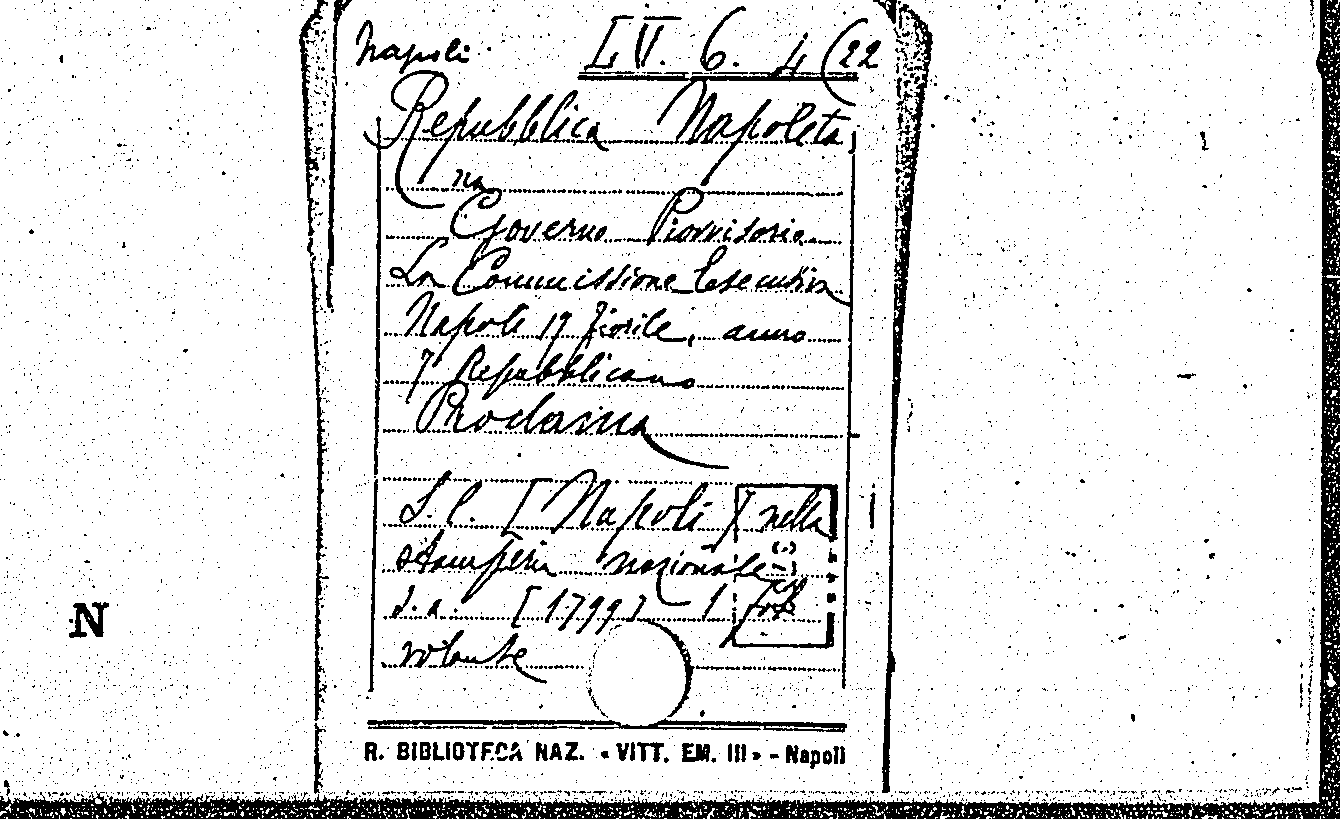 Napoli LV. 6. 4 (22
Repubblica Napoleta
na
Governo Provvisorio
La Commissione Esecutiva
Napoli 19 fiorile, anno
7° Repubblicano
Proclama
S. l. [Napoli] nella
stamperia nazionale
s. a. [1799] 1
volante
N
R. BIBLIOTECA NAZ. « VITT. EM. III » - Napoli